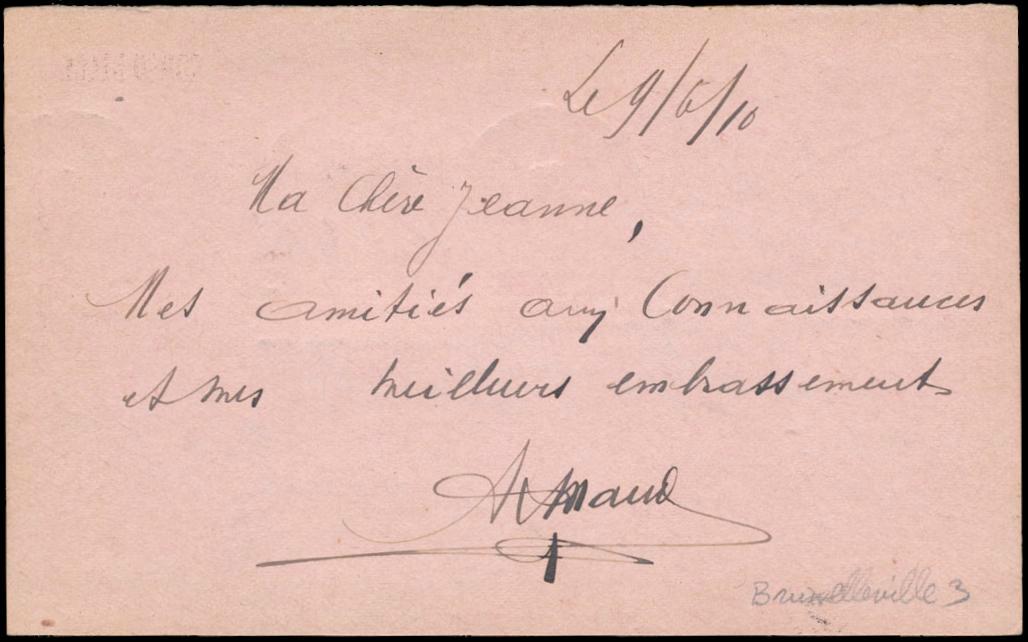 Le 9/6/10
Ma Chère Jeanne,
Mes amitiés aux Connaissances
et mes meilleurs embrassements
Armand